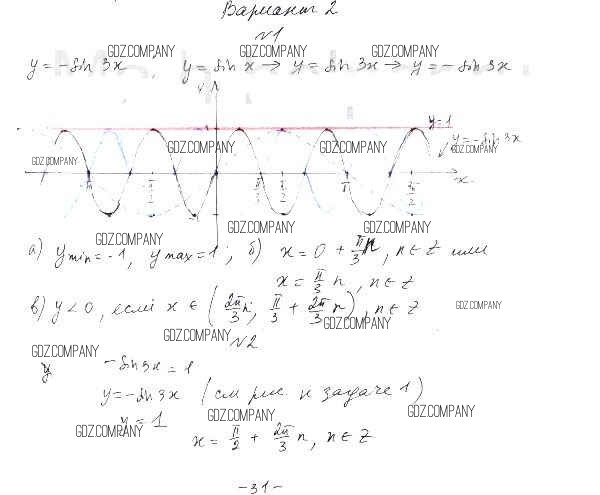 Вариант 2
№1
GDZ.COMPANY GDZ.COMPANY GDZ.COMPANY
y = -sin 3x, y = sin x → y = sin 3x → y = - sin 3x
y
y=1
y=-sin 3x
GDZ.COMPANY GDZ.COMPANY GDZ.COMPANY GDZ.COMPANY
-π -π/2 π/3 π/2 π 3π/2 x
-1
GDZ.COMPANY GDZ.COMPANY GDZ.COMPANY
а) y min = -1, y max = 1; б) x = 0 + π/3 n, n ∈ Z или
x = π/3 n, n ∈ Z
в) y < 0, если x ∈ (2π/3 n; π/3 + 2π/3 n), n ∈ Z GDZ.COMPANY
GDZ.COMPANY
№2
GDZ.COMPANY GDZ.COMPANY
y -sin 3x = 1
y = -sin 3x (см рис. к задаче 1)
y = 1
GDZ.COMPANY GDZ.COMPANY GDZ.COMPANY
x = π/2 + 2π/3 n, n ∈ Z
-31-